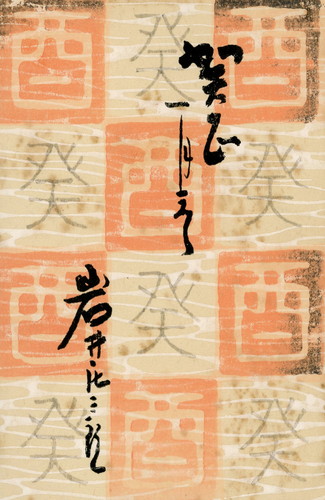 酉 癸 酉
癸 酉 癸
酉 癸 酉
癸 酉 癸
賀正
一月
岩井 三郎